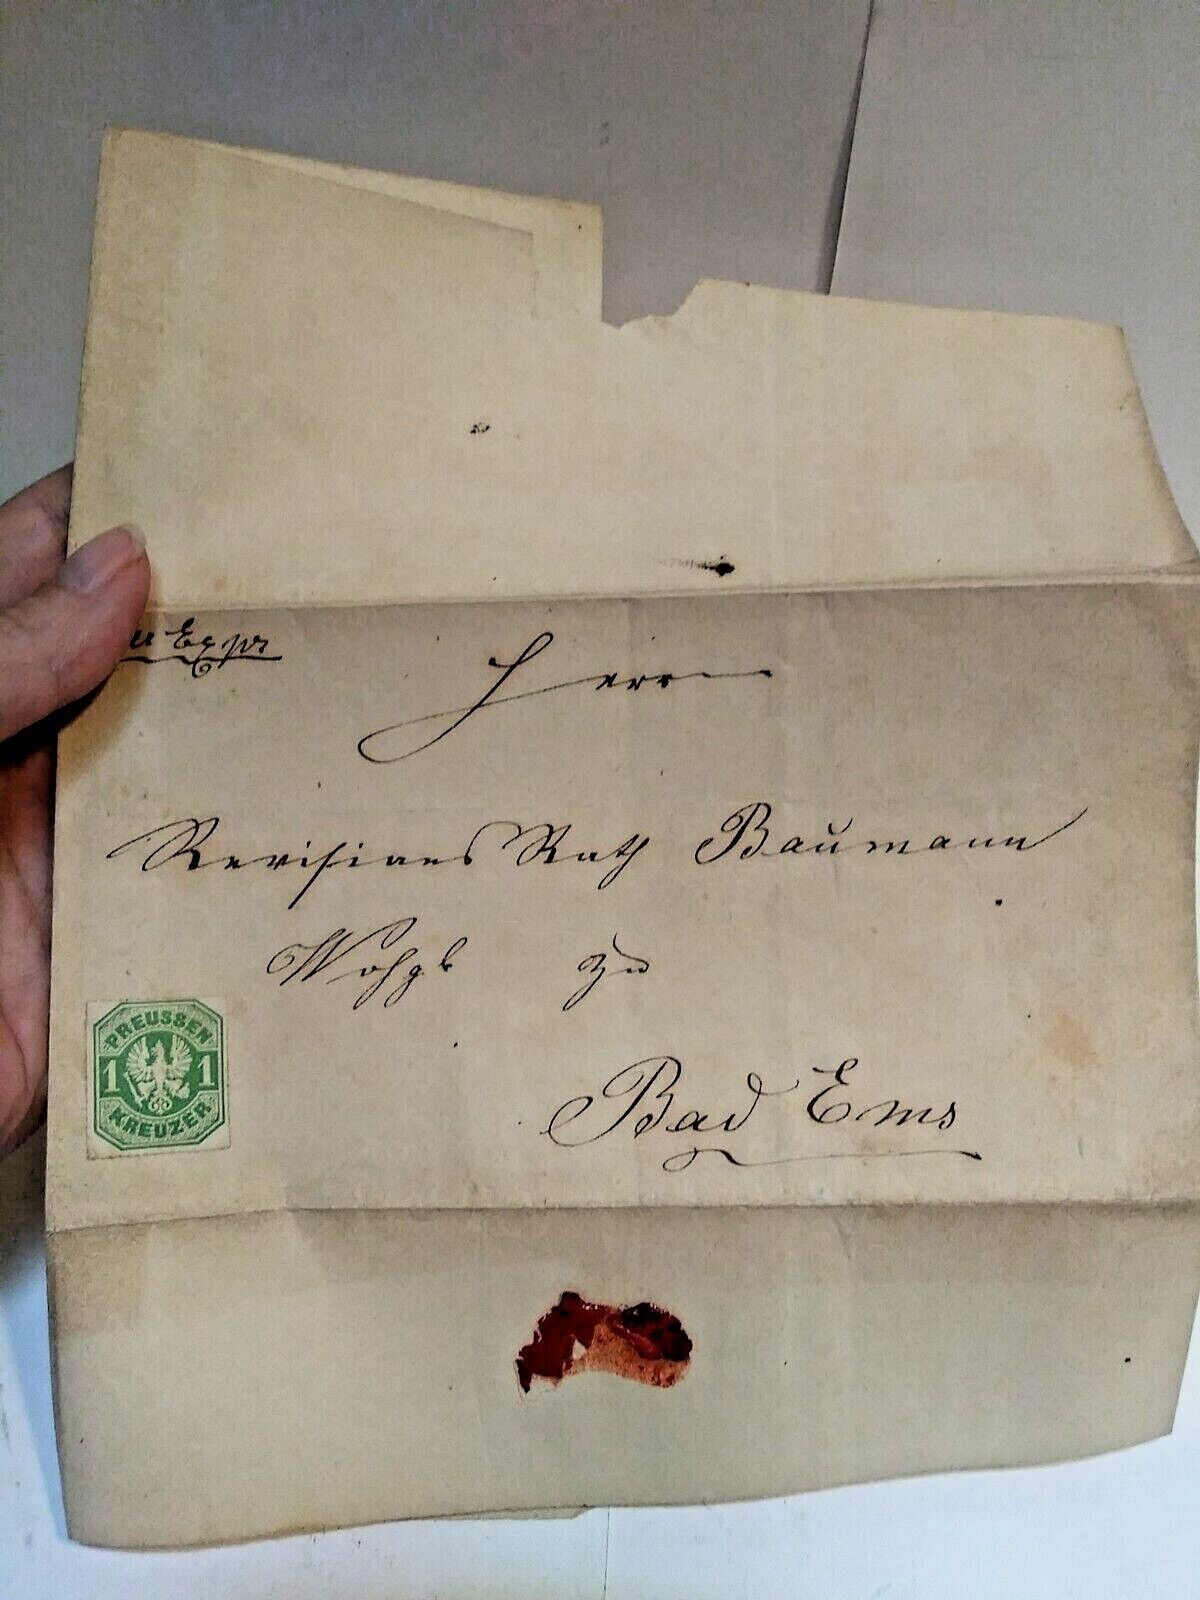 Expr
Herrn
Revisions Rath Baumann
Wohgb zu
Bad Ems
PREUSSEN
1 1
KREUZER